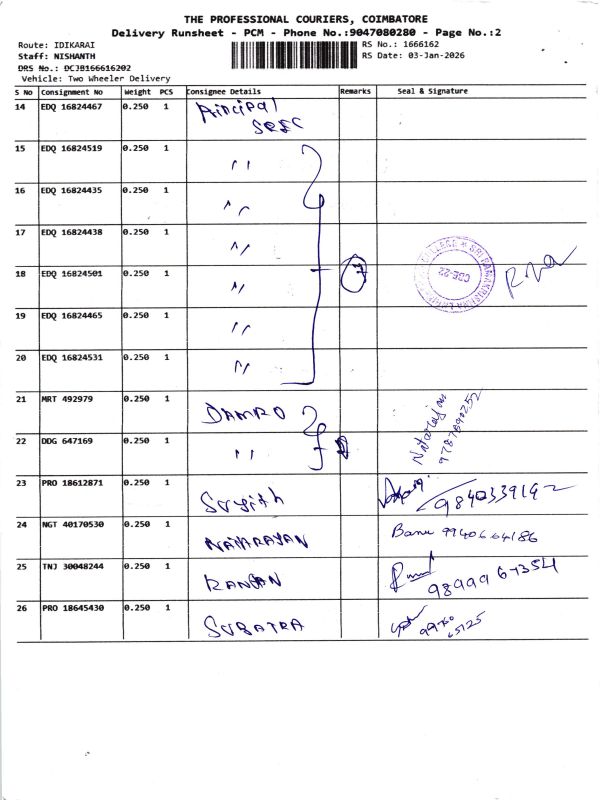 THE PROFESSIONAL COURIERS, COIMBATORE
Delivery Runsheet - PCM - Phone No.:9047080280 - Page No.:2
Route: IDIKARAI
RS No.: 1666162
Staff: NISHANTH
RS Date: 03-Jan-2026
DRS No.: DCJB166616202
Vehicle: Two Wheeler Delivery
S No Consignment No Weight PCS Consignee Details Remarks Seal & Signature
14 EDQ 16824467 0.250 1 Principal
15 EDQ 16824519 0.250 1 ,,
16 EDQ 16824435 0.250 1 ,,
17 EDQ 16824438 0.250 1 ,,
18 EDQ 16824501 0.250 1 ,, 7
19 EDQ 16824465 0.250 1 ,,
20 EDQ 16824531 0.250 1 ,,
21 MRT 492979 0.250 1 DAMRO Natarajan
22 DDG 647169 0.250 1 ,,
23 PRO 18612871 0.250 1 Sujith 9840339192
24 NGT 40170530 0.250 1 NATARAYAN Banu 9940664186
25 TNJ 30048244 0.250 1 RANGAN
26 PRO 18645430 0.250 1 SUBATRA